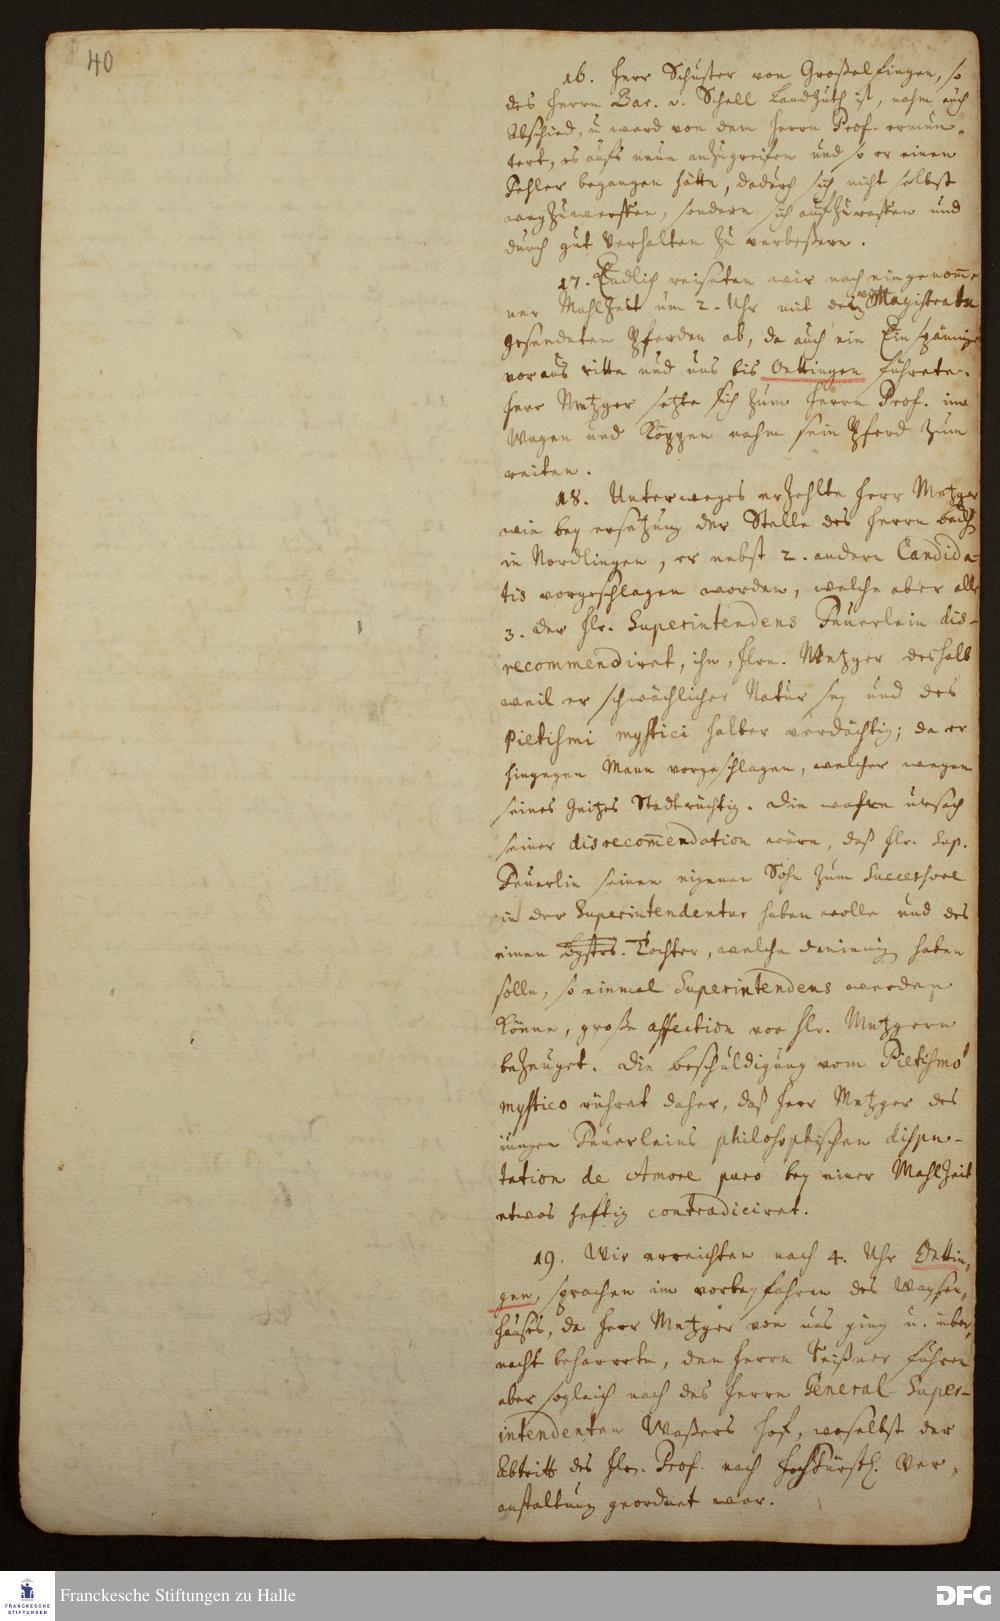 40
16. Herr Schuster von Großelfingen, so
des Herrn Bar. v. Schell Landhuth ist, nahm auch
Abschied, u ward von dem Herrn Prof. ermun-
tert, es aufs neue anzugreifen und so er einen
Fehler begangen hätte, dadurch sich nicht selbst
wegzuwerffen, sondern sich aufzuraffen und
durch gut Verhalten zu verbeßern.
17. Endlich reiseten wir nach eingenom̅e-
ner Mahlzeit um 2. Uhr mit des Magistratu
gesendeten Pferden ab, da auch ein Einspänniger
voraus ritte und uns bis Oettingen führete.
Herr Metzger setzte sich zum Herrn Prof. im
Wagen und Köppen nahm sein Pferd zum
reiten.
18. Unterweges erzehlte Herr Metzger
wie bey ersetzung der Stelle des Herrn
in Nordlingen, er nebst 2. andern Candida-
tis vorgeschlagen worden, welche aber alle
3. der Hr. Superintendens Feuerlein dis-
recommendiret, ihn, Hrn. Metzger deshalb
weil er schwächlicher Natur sey und des
Pietismi mystici halber verdächtig; da er
hingegen Mann vorgeschlagen, welcher wegen
seines Geitzes Stadtrüchtig. Die wahre ursach
seiner disrecom̅endation wäre, daß Hr. Sup.
Feuerlin seinen eigenen Sohn zum Successore
in der Superintendentur haben wolle und des
einen Tochter, welche denienig haben
solle, so einmal Superintendens werden
könne, große affection vor Hr. Metzgern
bezeuget. Die beschuldigung vom Pietismo
mystico rühret daher, daß Herr Metzger des
iungen Feuerleins philosophischen dispu-
tation de Amore puro bey einer Mahlzeit
etwas heftig contradiciret.
19. Wir erreichten nach 4. Uhr Oettin-
gen, sprachen im vorbeyfahren des Waysen-
hauses, da Herr Metzger von uns ging u. über
nacht beharrete, den Herrn Seißner führen
aber sogleich nach des Herrn General-Super-
intendenten Waßers Hof, woselbst der
Abtritt des Hrn. Prof. nach Hochfürstl. Ver-
anstaltung geordnet war.
FRANCKESCHE
STIFTUNGEN
Franckesche Stiftungen zu Halle
DFG